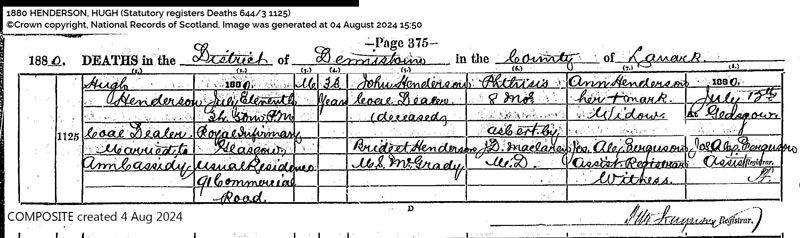 1880 HENDERSON, HUGH (Statutory registers Deaths 644/3 1125)
©Crown copyright, National Records of Scotland. Image was generated at 04 August 2024 15:50
—Page 375—
1880. DEATHS in the District of Dennistoun in the County of Lanark
(1.) (2.) (3.) (4.) (5.) (6.) (7.) (8.)
1125
Hugh
Henderson
Coal Dealer
Married to
Ann Cassidy
1880
July Eleventh
5h. 50m. P.M.
Royal Infirmary
Glasgow
Usual Residence
91 Commercial
Road.
M
38
Years
John Henderson
Coal Dealer
(deceased)
Bridget Henderson
M.S. McGrady
Phthisis
8 mos
as cert by
J.D. Maclaren
M.D.
Ann Henderson
her + mark
Widow
Jas. Alex. Ferguson
Assist. Registrar
Witness.
1880.
July 12th
At Glasgow
Jas Alex. Ferguson
Assist Registrar.
D
Registrar.
COMPOSITE created 4 Aug 2024